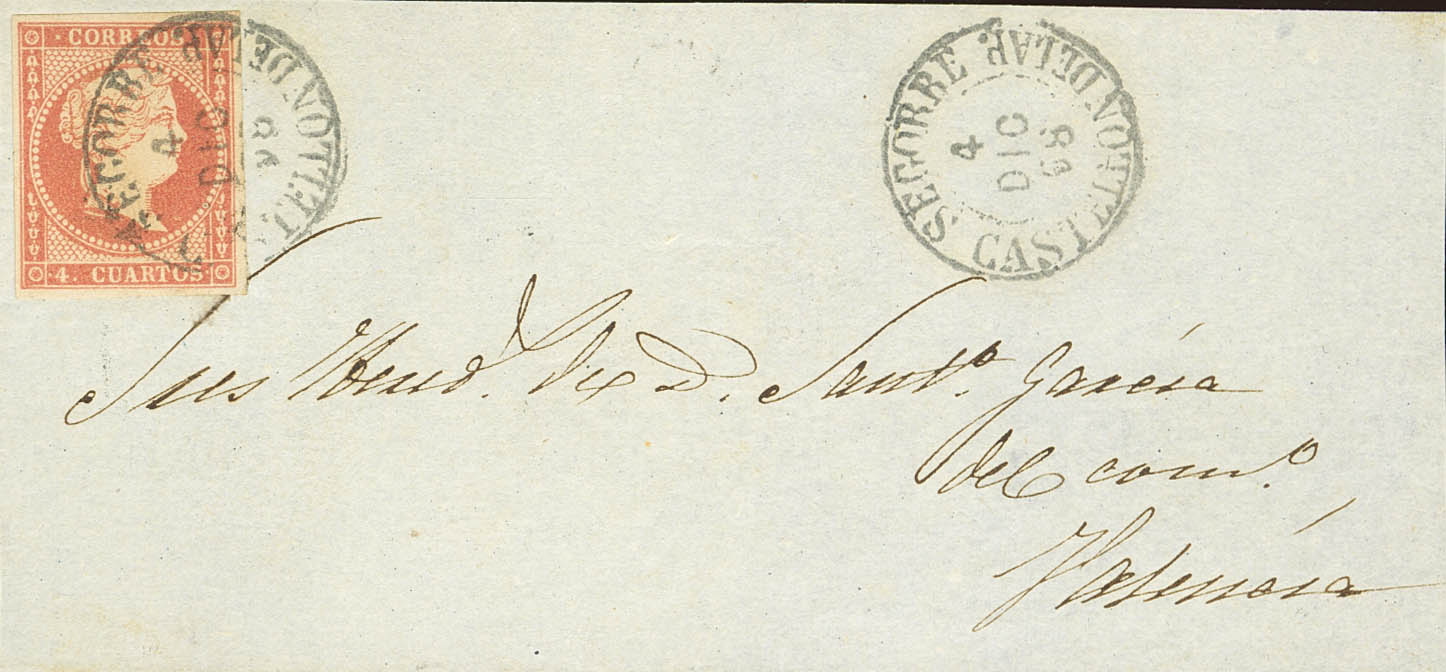 CORREOS
4. CUARTOS
SEGORBE
CASTELLON DE LA P.
4
DIC
58
SEGORBE
CASTELLON DE LA P.
4
DIC
58
Sres D. Santº. García
del comº.
Valencia